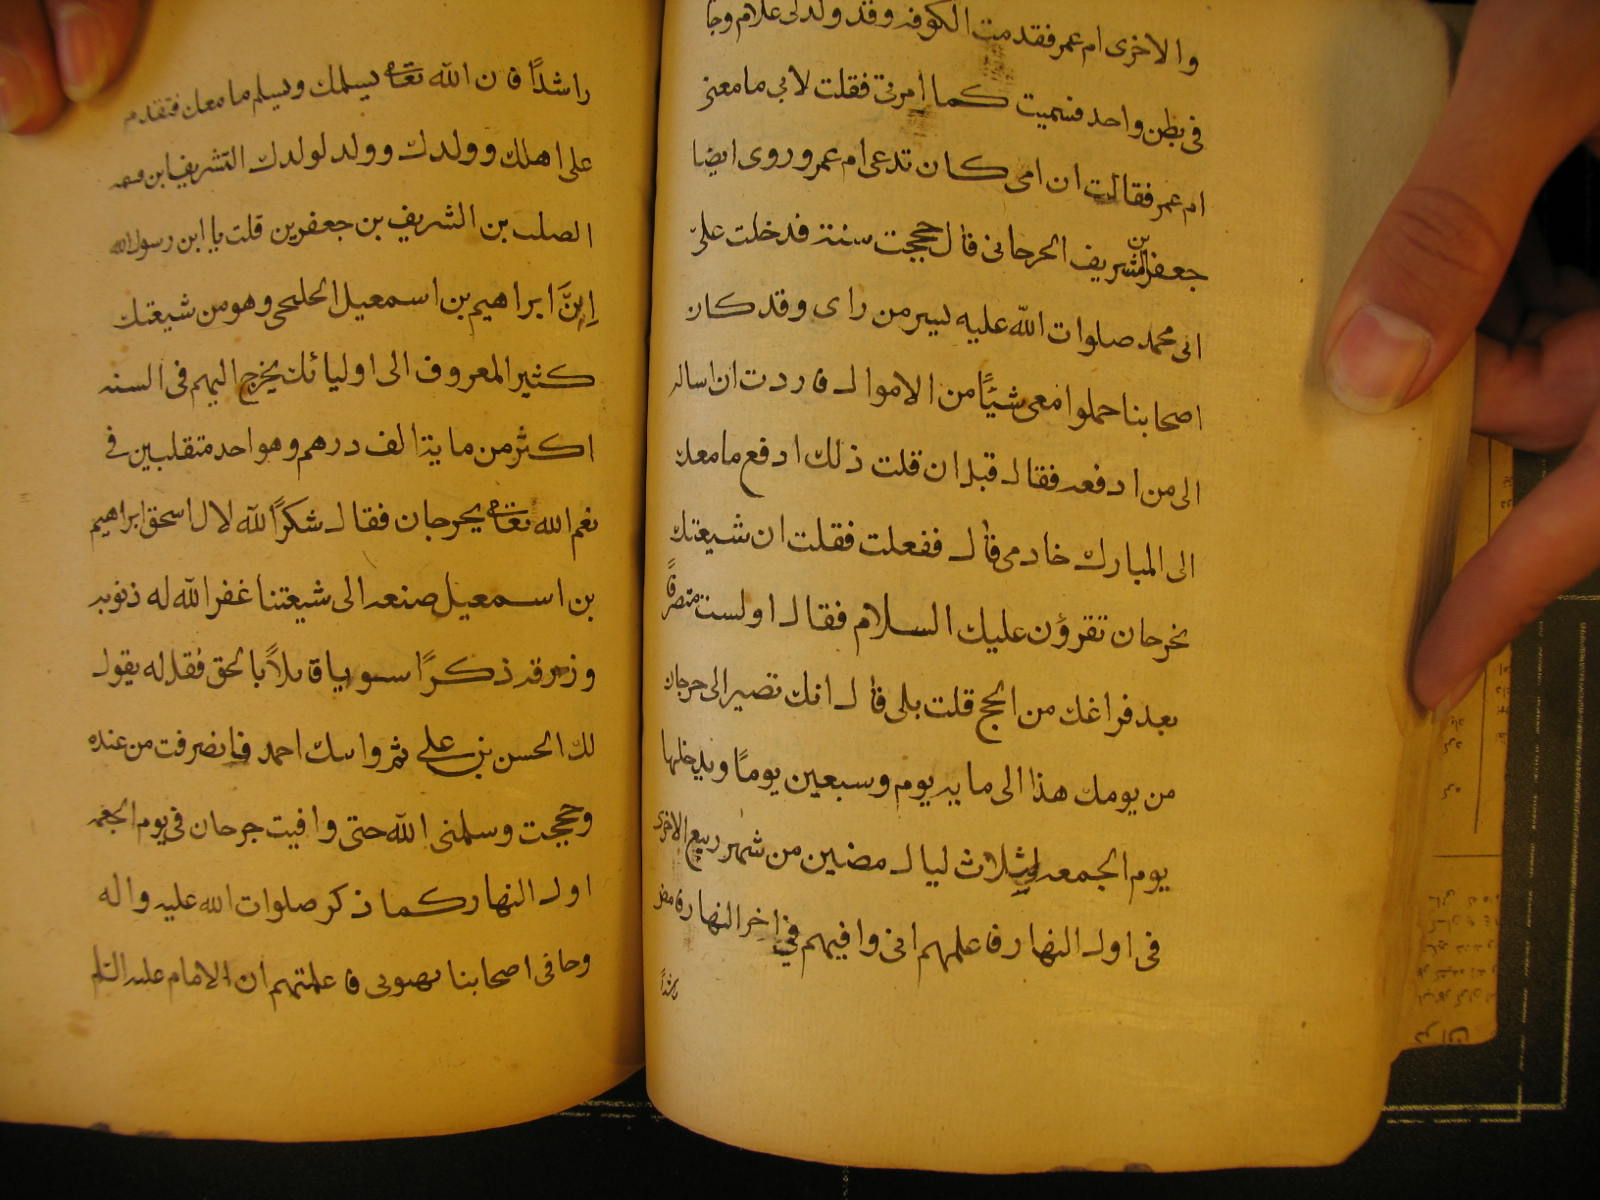 والاخرى ام عمر فقدمت الكوفه وقد ولد لى غلام وجا
فى بطن واحد فسميت كما امرنى فقلت لابى ما معنى
ام عمر فقالت ان امى كانت تدعى ام عمر وروى ايضا
جعفر بن الشريف الجرجانى قال حججت سنة فدخلت على
ابى محمد صلوات الله عليه بسر من راى وقد كان
اصحابنا حملوا معى شيًا من الاموال فاردت ان اساله
الى من ادفعه فقال قبل ان قلت ذلك ادفع ما معك
الى المبارك خادمى قال ففعلت فقلت ان شيعتك
بجرجان تقرؤن عليك السلام فقال اولست منصرفًا
بعد فراغك من الحج قلت بلى قال انك تصير الى جرجان
من يومك هذا الى مايه يوم وسبعين يومًا وتدخلها
يوم الجمعه لثلاث ليال مضين من شهر ربيع الاخرى
فى اول النهار فاعلمهم انى وافيهم فى اخر النهار فامض
راشدًا
راشدًا فان الله تعالى يسلمك ويسلم ما معك فتقدم
على اهلك وولدك وولد لولدك الشريف ابن فسمه
الصلب بن الشريف بن جعفر بن قلت يا ابن رسول الله
اِنَّ ابراهيم بن اسمعيل الحلحى وهو من شيعتك
كثير المعروف الى اوليائك يخرج اليهم فى السنه
اكثر من ماية الف درهم وهو احد متقلبين فى
نعم الله تعالى بجرجان فقال شكرًا لله لال اسحق ابراهيم
بن اسمعيل صنعه الى شيعتنا غفر الله له ذنوبه
ورزقه ذكرًا سويا قايلاً بالحق فقل له يقول
لك الحسن بن على ثم واسك احمد فانصرفت من عنده
وحججت وسلمنى الله حتى وافيت جرجان فى يوم الجمعه
اول النهار كما ذكر صلوات الله عليه واله
وجانى اصحابنا يهنونى فاعلمتهم ان الامام عليه السلم